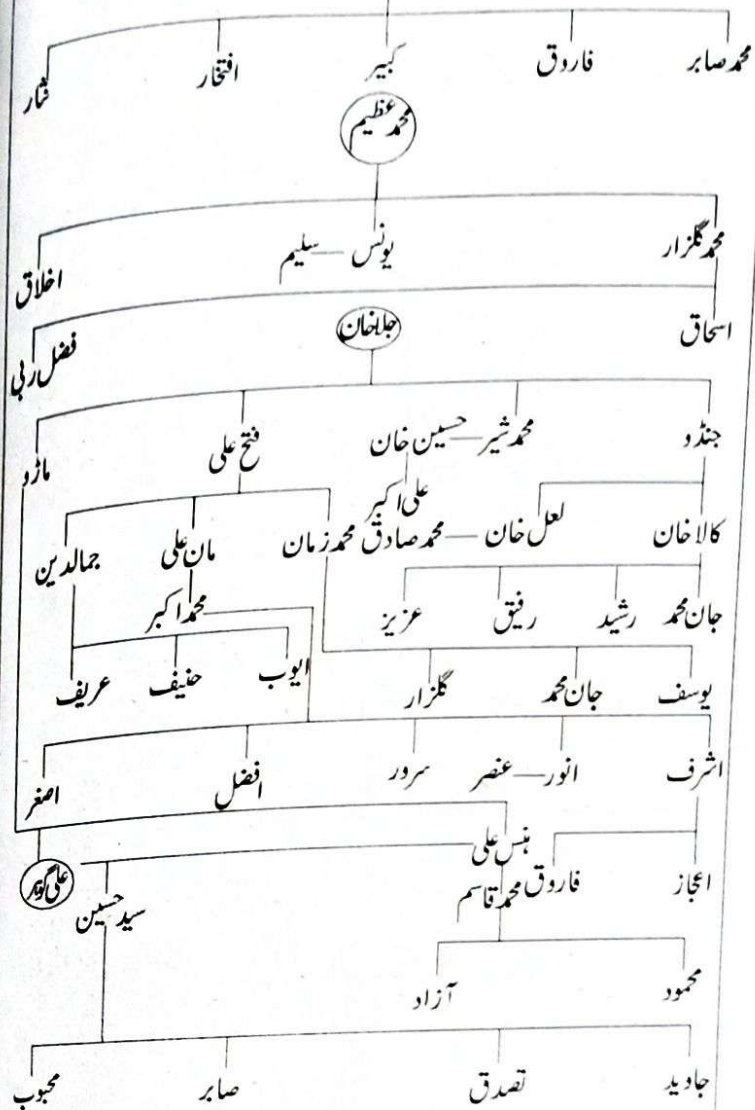 محمد صابر فاروق کبیر افتخار نثار
محمد عظیم
محمد گلزار یونس — سلیم اخلاق
اسحاق فضل ربی
جلا خان
جنڈو محمد شیر — حسین خان فتح علی ماڑو
علی اکبر
کالا خان لعل خان — محمد صادق محمد زمان مان علی جمالدین
جان محمد رشید رفیق عزیز محمد اکبر
یوسف جان محمد گلزار ایوب حنیف عریف
اشرف انور — عنصر سرور افضل اصغر
ہنس علی
اعجاز فاروق محمد قاسم سید حسین علی گوہر
محمود آزاد
جاوید تصدق صابر محبوب